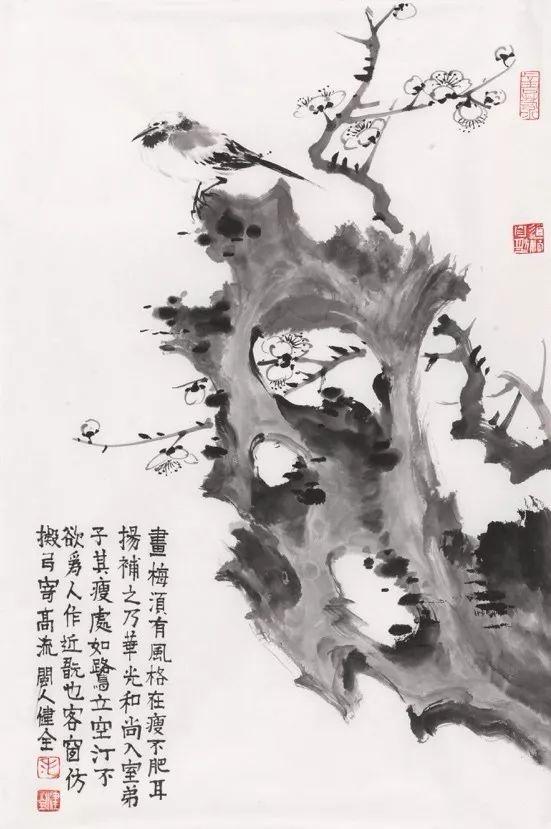 畫梅須有風格在瘦不肥耳
揚補之乃華光和尚入室弟
子其瘦處如鷺立空汀不
欲爲人作近翫也客窗仿
擬弓寄高流閩人健全